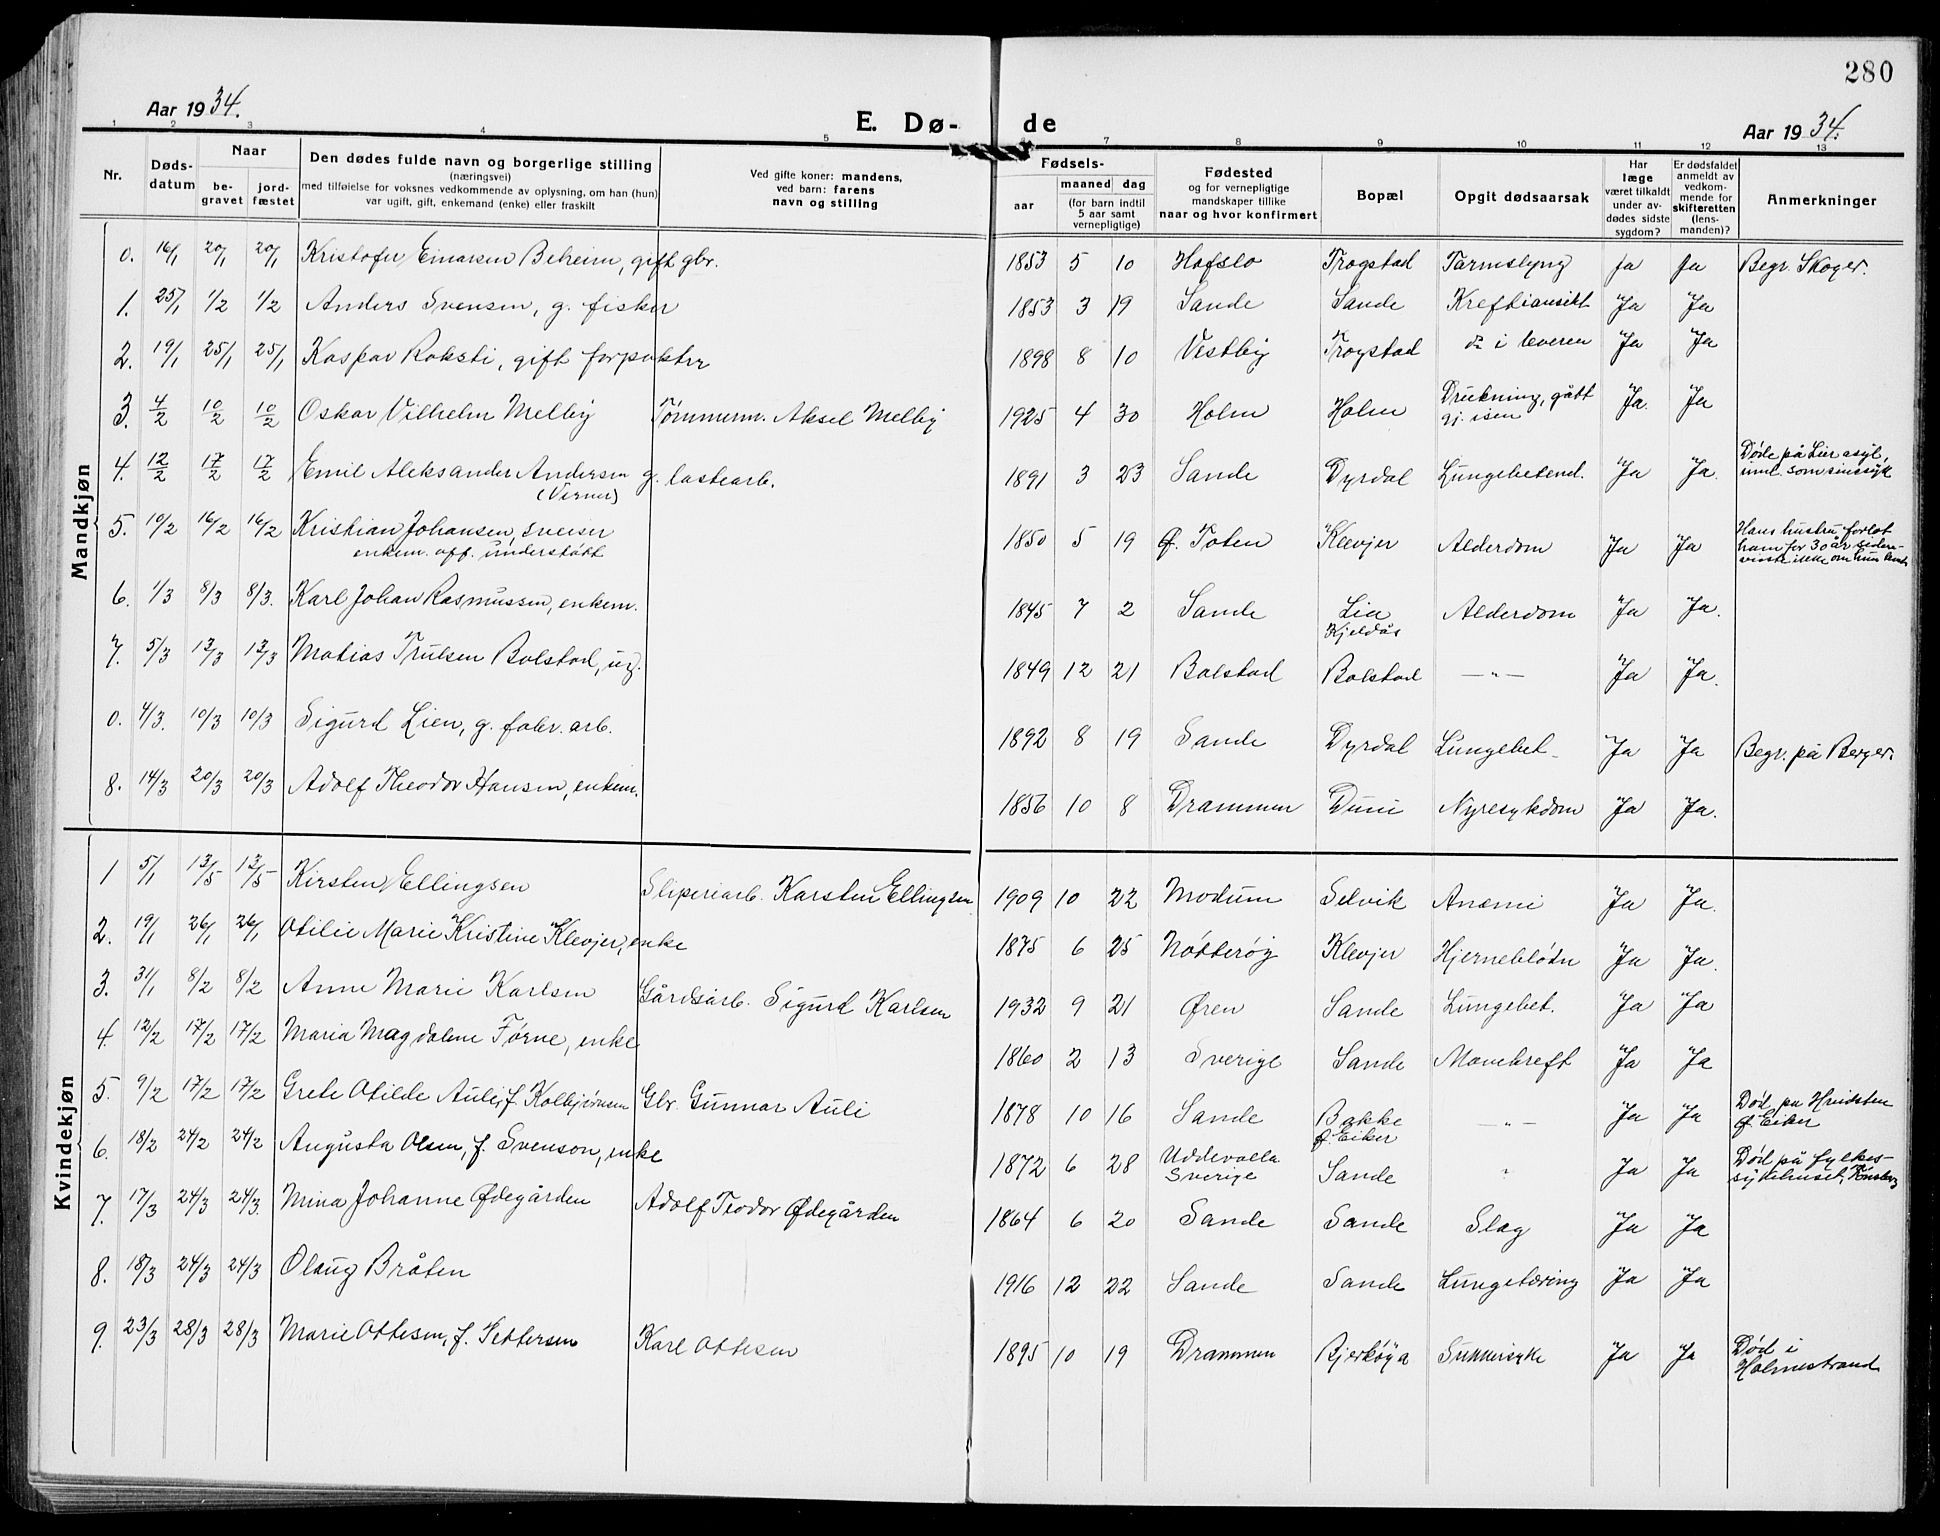 280
Aar 1934.
E. Dø-de
Aar 1934.
1 2 3 4 5 7 8 9 10 11 12 13
Nr.
Døds-datum
Naar
be-gravet
jord-fæstet
Den dødes fulde navn og borgerlige stilling
(næringsvei)
med tilføielse for voksnes vedkommende av oplysning, om han (hun)
var ugift, gift, enkemand (enke) eller fraskilt
Ved gifte koner: mandens,
ved barn: farens
navn og stilling
Fødsels-
aar
maaned dag
(for barn indtil
5 aar samt
vernepligtige)
Fødested
og for vernepligtige
mandskaper tillike
naar og hvor konfirmert
Bopæl
Opgit dødsaarsak
Har
læge
været tilkaldt
under av-
dødes sidste
sygdom?
Er dødsfaldet
anmeldt av
vedkom-
mende for
skifteretten
(lens-
manden)?
Anmerkninger
Mandkjøn
0. 16/1 20/1 20/1 Kristofer Einarsen Beheim, gift gbr. 1853 5 10 Hofslo Trogstad Tarmslyng Ja Ja Begr. Skoger.
1. 25/1 1/2 1/2 Anders Svensen, g. fisker 1853 3 19 Sande Sande Kreftiansikt Ja Ja
2. 19/1 25/1 25/1 Kaspar Roksti, gift forpakter 1898 8 10 Vestby Trogstad do i leveren Ja Ja
3. 4/2 10/2 10/2 Oskar Vilhelm Melby Tømmerm. Aksel Melby 1925 4 30 Holm Holm Drukning, gått gj. isen Ja. Ja
4. 12/2 17/2 17/2 Emil Aleksander Andersen g. lastearb. (Verner) 1891 3 23 Sande Dyrdal Lungebetend. Ja Ja. Døde på Lier asyl, innl. som sinssyk
5. 10/2 16/2 16/2 Kristian Johansen, sveiser
enkem. off. understøtt 1850 5 19 Ø. Toten Klevjer Alderdom Ja Ja Hans hustru forlot ham for 30 år siden - visste ikke om hun
6. 1/3 8/3 8/3. Karl Johan Rasmussen, enkem. 1845 7 2 Sande Lia Kjeldås Alderdom Ja Ja.
7. 5/3 12/3 12/3 Matias Trulsen Bolstad, ug. 1849 12 21 Bolstad Bolstad —"— Ja Ja.
0. 4/3. 10/3 10/3 Sigurd Lien, g. fabr. arb. 1892 8 19 Sande Dyrdal Lungebet. Ja Ja Begr. på Berger.
8. 14/3 20/3 20/3 Adolf Theodor Hansen, enkem. 1856 10 8 Drammen Duni Nyresykdom Ja Ja.
Kvindekjøn
1 5/1 13/5 13/5 Kirsten Ellingsen Sliperiarb. Karsten Ellingsen 1909 10 22 Modum Selvik Anæmi Ja Ja.
2. 19/1 26/1 26/1 Otilie Marie Kristine Klevjer, enke 1875 6 25 Nøtterøy Klevjer Hjerneblødn Ja Ja.
3. 31/1 8/2 8/2 Anne Marie Karlsen Gårdsarb. Sigurd Karlsen 1932 9 21 Øren Sande Lungebet. Ja Ja
4. 12/2 17/2 17/2 Maria Magdalene Førne, enke 1860 2 13 Sverige Sande Mavekreft Ja Ja
5. 9/2 17/2 17/2 Grete Otilde Auli, f. Kolbjørnsen Gbr. Gunnar Auli 1878 10 16 Sande Bakke Ø. Eiker —"— Ja Ja Død på Hvidsten Ø. Eiker
6. 18/2 24/2 24/2 Augusta Olsen, f. Svenson, enke 1872 6 28 Uddevalla Sverige Sande " Ja Ja Død på fylkes-sykehuset, Tønsberg
7. 17/3 24/3 24/3. Mina Johanne Ødegården Adolf Teodor Ødegården 1864 6 20 Sande Sande Slag Ja Ja
8. 18/3 24/3 24/3 Olaug Bråten 1916 12 22 Sande Sande Lungetæring Ja Ja
9. 23/3 28/3 28/3 Marie Ottesen, f. Pettersen Karl Ottesen 1895 10 19 Drammen Bjerkøya Sukkersyke Ja Ja Død i Holmestrand